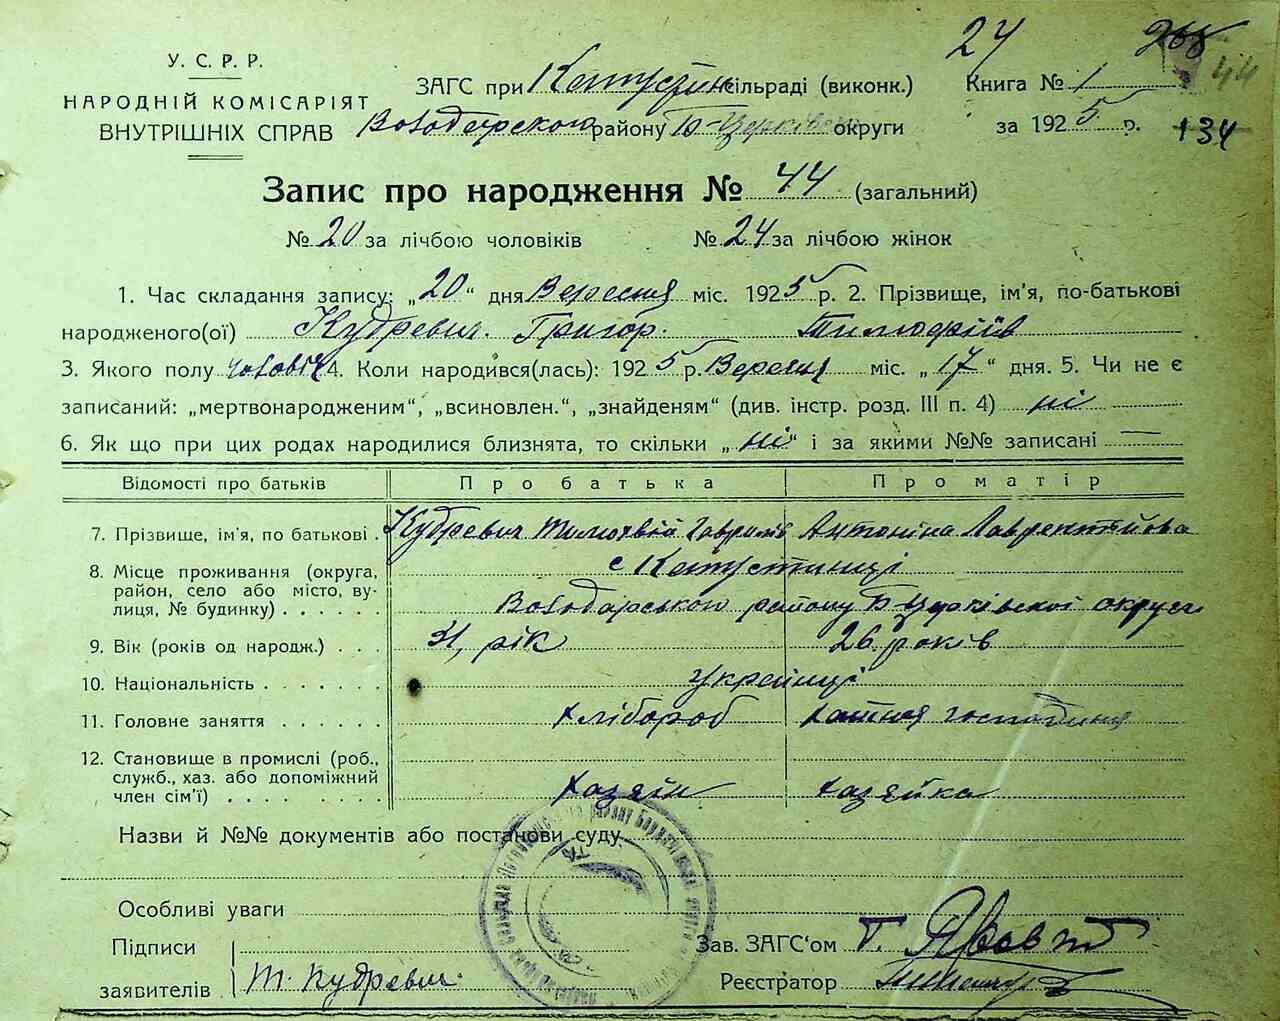 24 268
У. С. Р. Р. 44
НАРОДНІЙ КОМІСАРІЯТ
ВНУТРІШНІХ СПРАВ
ЗАГС при сільраді (виконк.) Книга № 1
Володарского району Б-Церківської округи за 1925 р. 134
Запис про народження № 44 (загальний)
№ 20 за лічбою чоловіків № 24 за лічбою жінок
1. Час складання запису: „20“ дня Вересня міс. 1925 р. 2. Прізвище, ім'я, по-батькові
народженого(ої) Кудревич Григор. Тимофіїв
3. Якого полу чоловіч 4. Коли народився(лась): 1925 р. Вересня міс. „17“ дня. 5. Чи не є
записаний: „мертвонародженим“, „всиновлен.“, „знайденям“ (див. інстр. розд. III п. 4) ні
6. Як що при цих родах народилися близнята, то скільки „ні“ і за якими №№ записані —
Відомості про батьків Про батька Про матір
7. Прізвище, ім'я, по батькові . Кудревич Тимохвій Гаврилів Антоніна Лаврентійова
8. Місце проживання (округа, с
район, село або місто, вулиця, № будинку) . . . . . Володарського району Б Церківскої округи
9. Вік (років од народж.) . . . 31, рік 26 років
10. Національність . . . . . . . Українці
11. Головне заняття . . . . . . Хлібороб Хатня господиня
12. Становище в промислі (роб.,
служб., хаз. або допоміжний
член сім'ї) . . . . . . . . . . Хазяїн Хазяйка
Назви й №№ документів або постанови суду.
Особливі уваги
Підписи Зав. ЗАГС'ом
заявителів Т. Кудревич Реєстратор